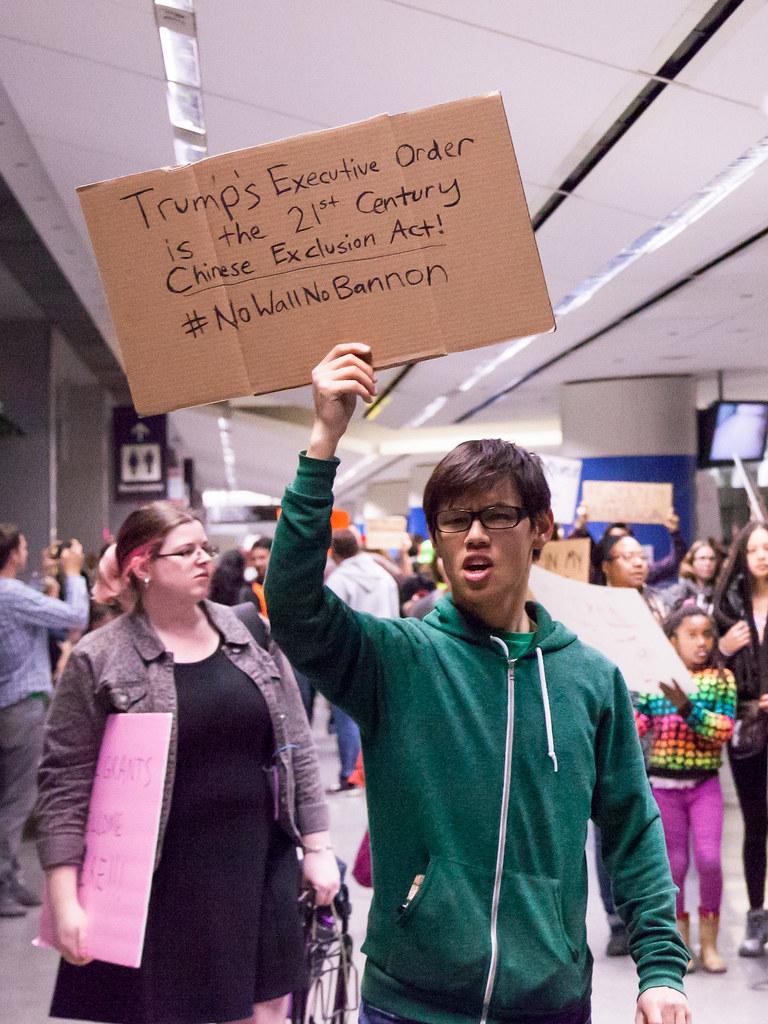 Trump's Executive Order
is the 21st Century
Chinese Exclusion Act!
#NoWallNoBannon
GRANTS